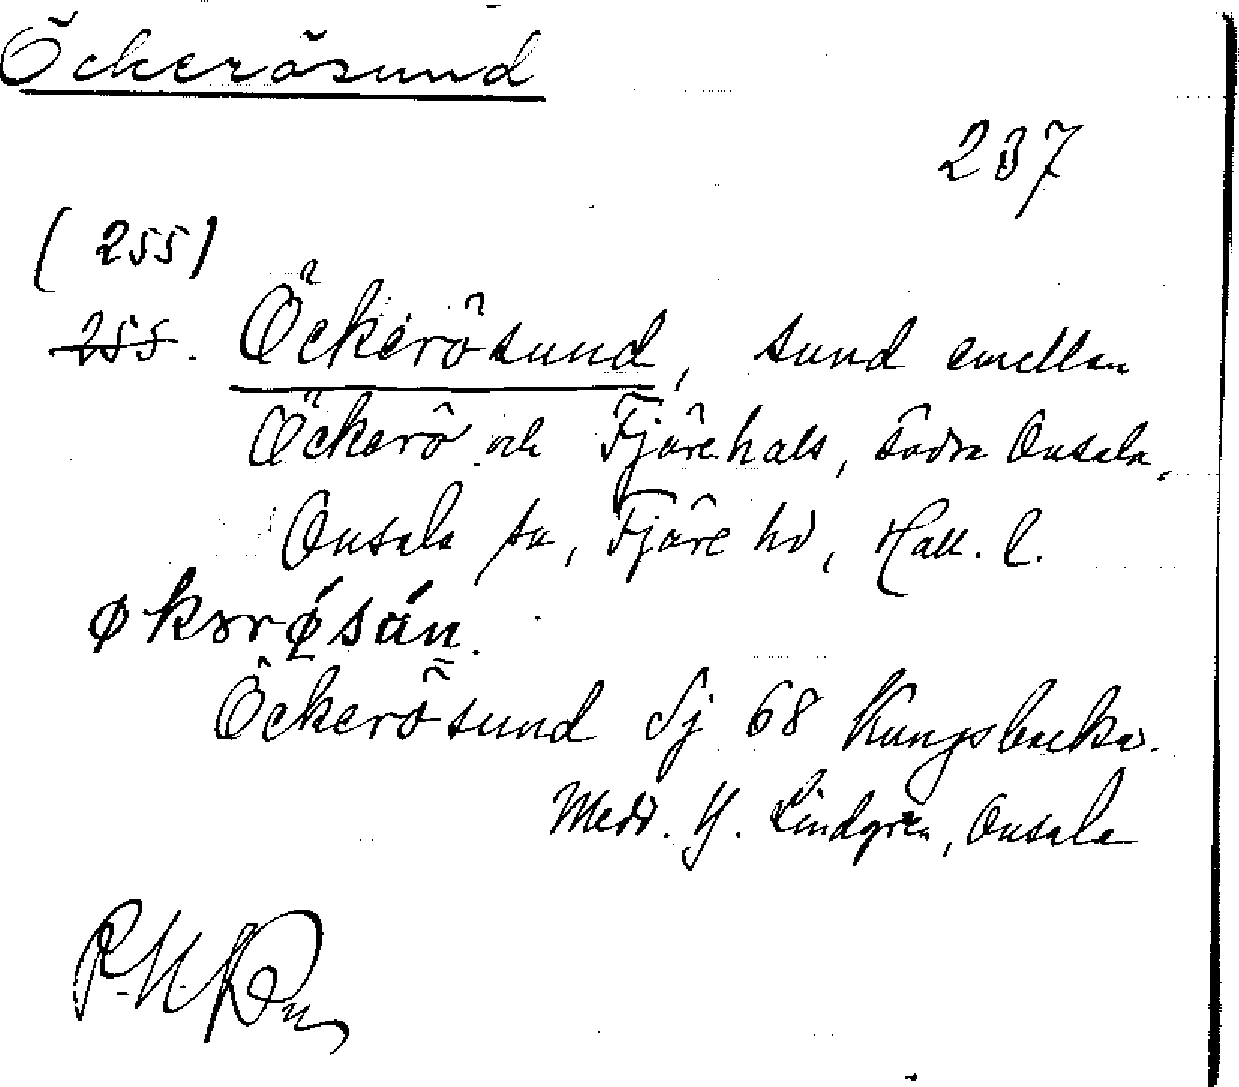 Öckerösund
237
(255)
255. Öckerösund, sund emellan
Öckerö och Fjärehals, Södra Onsala,
Onsala sn, Fjäre hd, Hall. l.
økərǿsún.
Öckerösund Sj 68 Kungsbacka.
Medd. Y. Lindgren, Onsala